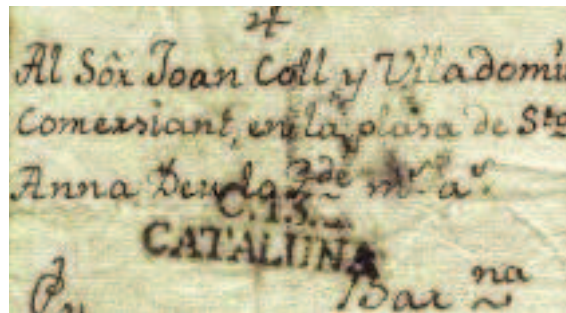 Al Sôr Joan Coll y Viladomi
Comersiant, en la plasa de Sta
Anna Deu la
C.1S.
CATALUÑA
Bar na